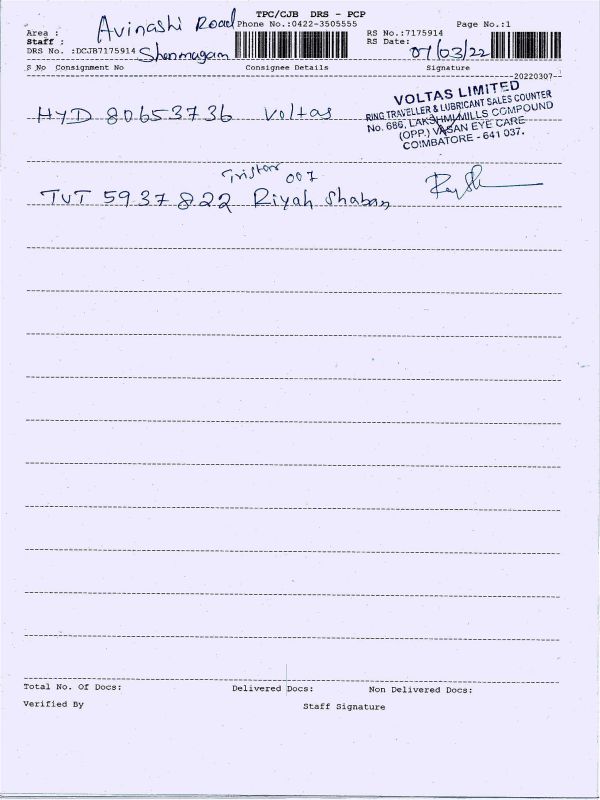 TPC/CJB DRS - PCP
Area : Avinashi Road Phone No.:0422-3505555 Page No.:1
Staff : Shanmugam RS No.:7175914
DRS No. :DCJB7175914 RS Date: 07/03/22
S No Consignment No Consignee Details Signature
20220307
HYD 80653736 Voltas
VOLTAS LIMITED
RING TRAVELLER & LUBRICANT SALES COUNTER
No. 686, LAKSHMI MILLS COMPOUND
(OPP.) VASAN EYE CARE
COIMBATORE - 641 037.
Tristar 007
TUT 5937822 Riyah Shaban
Total No. Of Docs: Delivered Docs: Non Delivered Docs:
Verified By Staff Signature